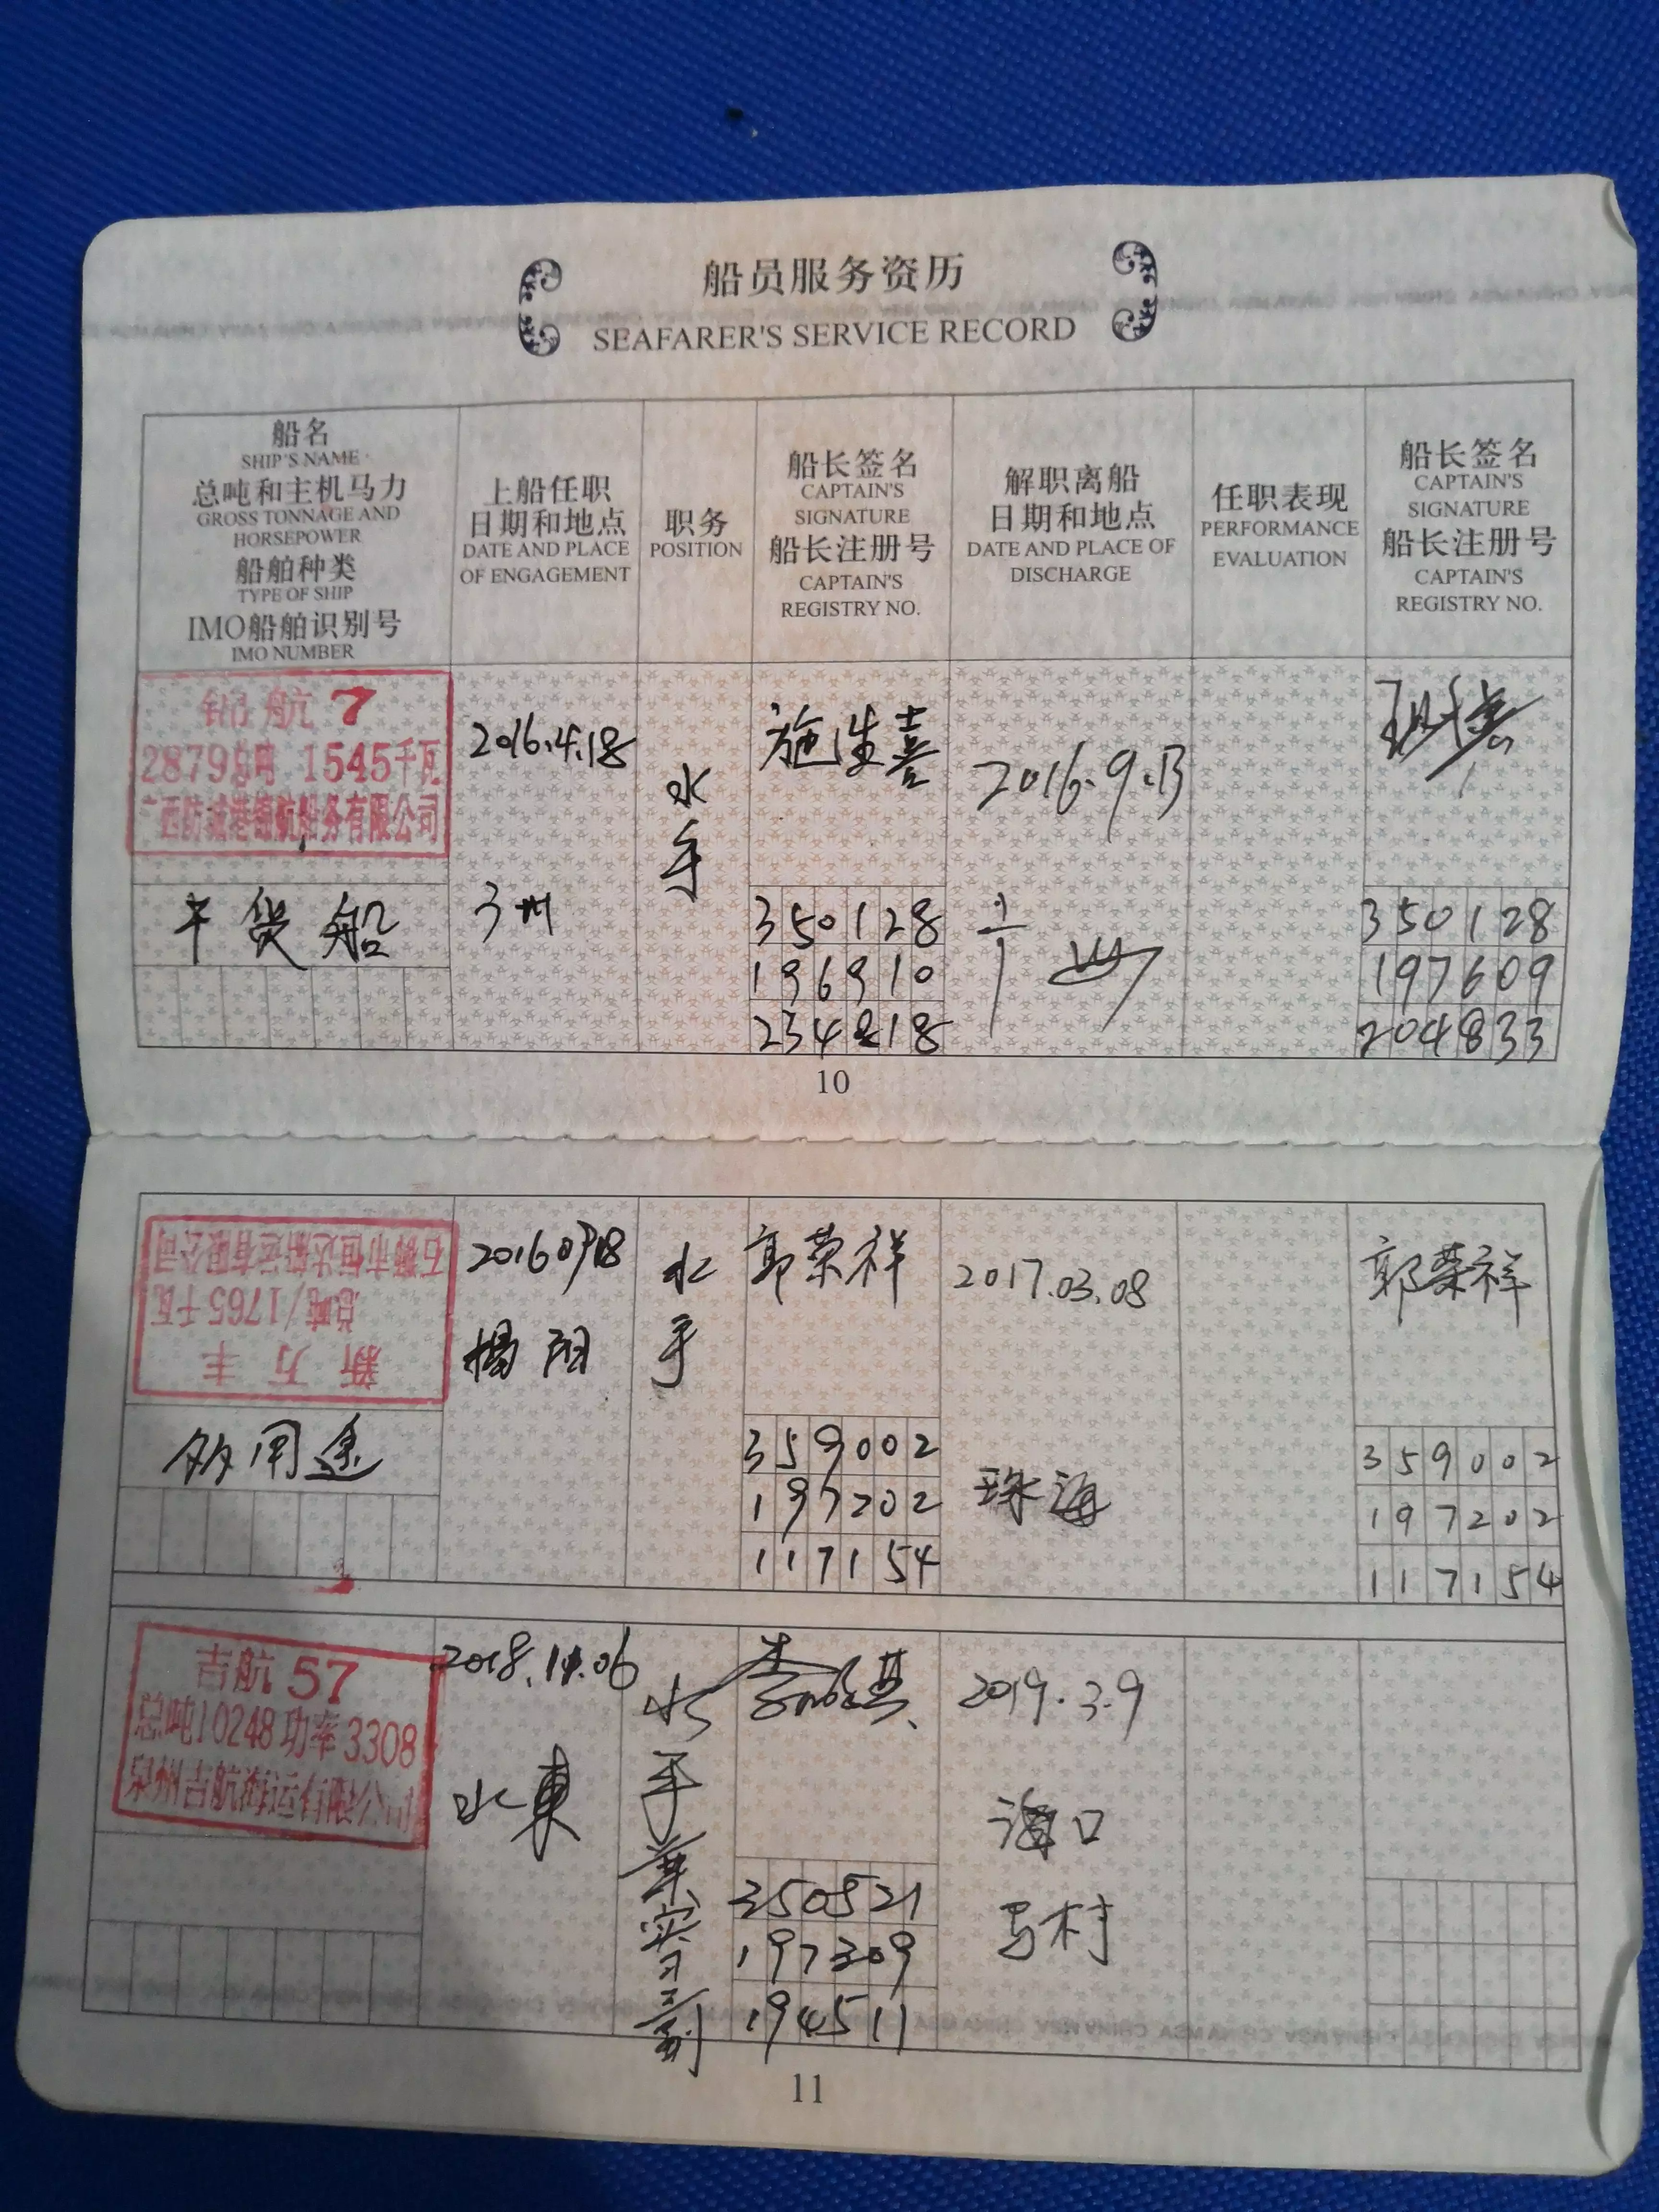 船员服务资历
SEAFARER'S SERVICE RECORD
船名
SHIP'S NAME
总吨和主机马力
GROSS TONNAGE AND
HORSEPOWER
船舶种类
TYPE OF SHIP
IMO船舶识别号
IMO NUMBER
上船任职
日期和地点
DATE AND PLACE
OF ENGAGEMENT
职务
POSITION
船长签名
CAPTAIN'S
SIGNATURE
船长注册号
CAPTAIN'S
REGISTRY NO.
解职离船
日期和地点
DATE AND PLACE OF
DISCHARGE
任职表现
PERFORMANCE
EVALUATION
船长签名
CAPTAIN'S
SIGNATURE
船长注册号
CAPTAIN'S
REGISTRY NO.
航 7
2879总吨 1545千瓦
广西防城港锦航船务有限公司
干货船
2016.4.18
水手
施生喜
350128
196910
2016.9.13
350128
197609
204833
10
新万丰
总吨/1765千瓦
石狮市恒达船运有限公司
多用途
揭阳
水手
郭荣祥
359002
197202
117154
2017.03.08
珠海
郭荣祥
359002
197202
117154
吉航 57
总吨10248功率3308
泉州吉航海运有限公司
水東
水手兼实习三副
350521
197309
194511
2019.3.9
海口
马村
11